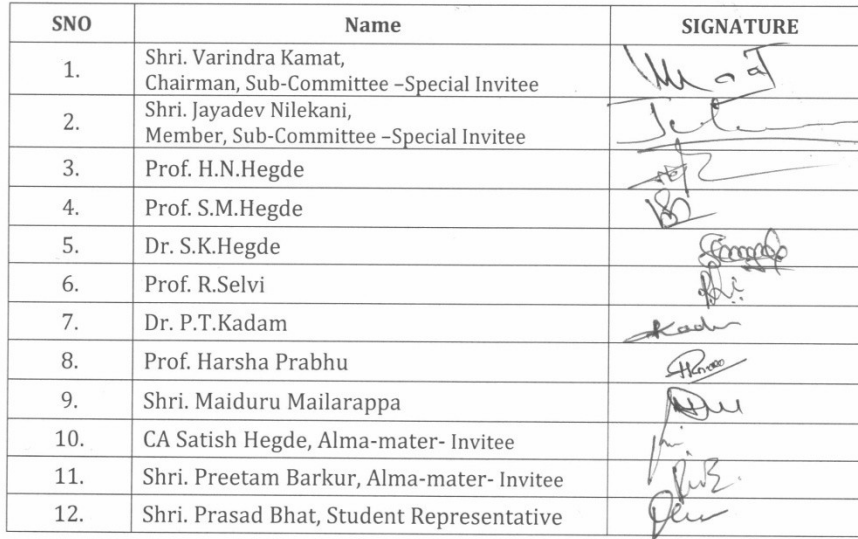 SNO Name SIGNATURE
1. Shri. Varindra Kamat,
Chairman, Sub-Committee –Special Invitee
2. Shri. Jayadev Nilekani,
Member, Sub-Committee –Special Invitee
3. Prof. H.N.Hegde
4. Prof. S.M.Hegde
5. Dr. S.K.Hegde
6. Prof. R.Selvi
7. Dr. P.T.Kadam
8. Prof. Harsha Prabhu
9. Shri. Maiduru Mailarappa
10. CA Satish Hegde, Alma-mater- Invitee
11. Shri. Preetam Barkur, Alma-mater- Invitee
12. Shri. Prasad Bhat, Student Representative